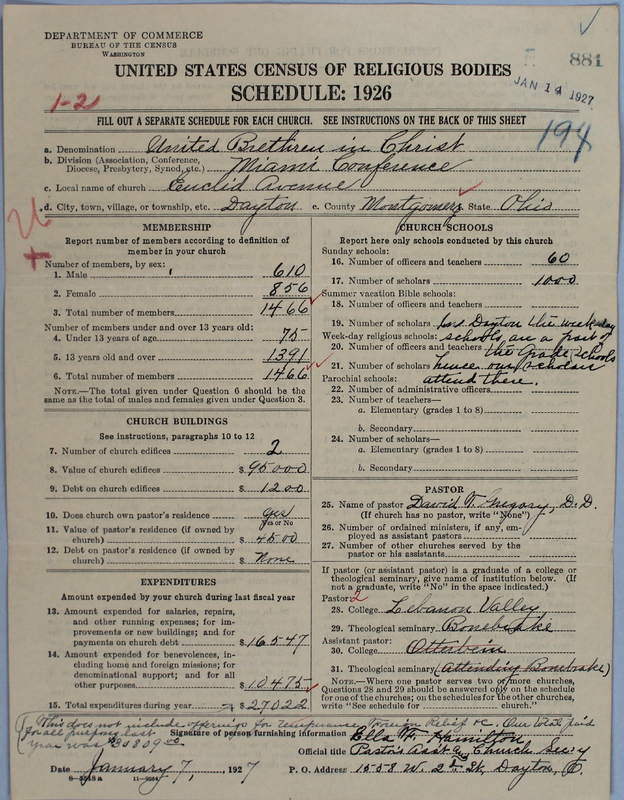 DEPARTMENT OF COMMERCE
BUREAU OF THE CENSUS
WASHINGTON
881
JAN 14 1927
UNITED STATES CENSUS OF RELIGIOUS BODIES
SCHEDULE: 1926
1-2
FILL OUT A SEPARATE SCHEDULE FOR EACH CHURCH. SEE INSTRUCTIONS ON THE BACK OF THIS SHEET
194
a. Denomination United Brethren in Christ
b. Division (Association, Conference, Diocese, Presbytery, Synod, etc.) Miami Conference
c. Local name of church Euclid Avenue
d. City, town, village, or township, etc. Dayton e. County Montgomery State Ohio
MEMBERSHIP
Report number of members according to definition of
member in your church
Number of members, by sex:
1. Male 610
2. Female 856
3. Total number of members 1466
Number of members under and over 13 years old:
4. Under 13 years of age 75
5. 13 years old and over 1391
6. Total number of members 1466
NOTE.—The total given under Question 6 should be
the same as the total of males and females given under Question 3.
CHURCH BUILDINGS
See instructions, paragraphs 10 to 12
7. Number of church edifices 2
8. Value of church edifices $ 95000
9. Debt on church edifices $ 1200
10. Does church own pastor's residence yes
Yes or No
11. Value of pastor's residence (if owned by
church) $ 4500
12. Debt on pastor's residence (if owned by
church) $ None
EXPENDITURES
Amount expended by your church during last fiscal year
13. Amount expended for salaries, repairs,
and other running expenses; for im-
provements or new buildings; and for
payments on church debt $ 16547
14. Amount expended for benevolences, in-
cluding home and foreign missions; for
denominational support; and for all
other purposes $ 10475
15. Total expenditures during year $ 27022
CHURCH SCHOOLS
Report here only schools conducted by this church
Sunday schools:
16. Number of officers and teachers 60
17. Number of scholars 1000
Summer vacation Bible schools:
18. Number of officers and teachers
19. Number of scholars In Dayton the week-day
Week-day religious schools: schools are a part of
20. Number of officers and teachers the Grade schools
21. Number of scholars hence our scholars
Parochial schools: attend there.
22. Number of administrative officers
23. Number of teachers—
a. Elementary (grades 1 to 8)
b. Secondary
24. Number of scholars—
a. Elementary (grades 1 to 8)
b. Secondary
PASTOR
25. Name of pastor David T. Gregory, D.D.
(If church has no pastor, write "None")
26. Number of ordained ministers, if any, em-
ployed as assistant pastors
27. Number of other churches served by the
pastor or his assistants
If pastor (or assistant pastor) is a graduate of a college or
theological seminary, give name of institution below. (If
not a graduate, write "No" in the space indicated.)
Pastor: 2
28. College Lebanon Valley
29. Theological seminary Bonebrake
Assistant pastor:
30. College Otterbein
31. Theological seminary (attending Bonebrake)
NOTE.—Where one pastor serves two or more churches,
Questions 28 and 29 should be answered only on the schedule
for one of the churches; on the schedules for the other churches,
write "See schedule for church."
(This does not include offerings for Temperance, Foreign Relief &c. Our total paid
for all purposes last
year was $30809.00
Signature of person furnishing information Ella M. Hamilton
Official title Pastor's Ass't and Church Sec'y
Date January 7, 1927 P. O. Address 1558 W. 2nd St, Dayton, O.
8-5518a 11-9884